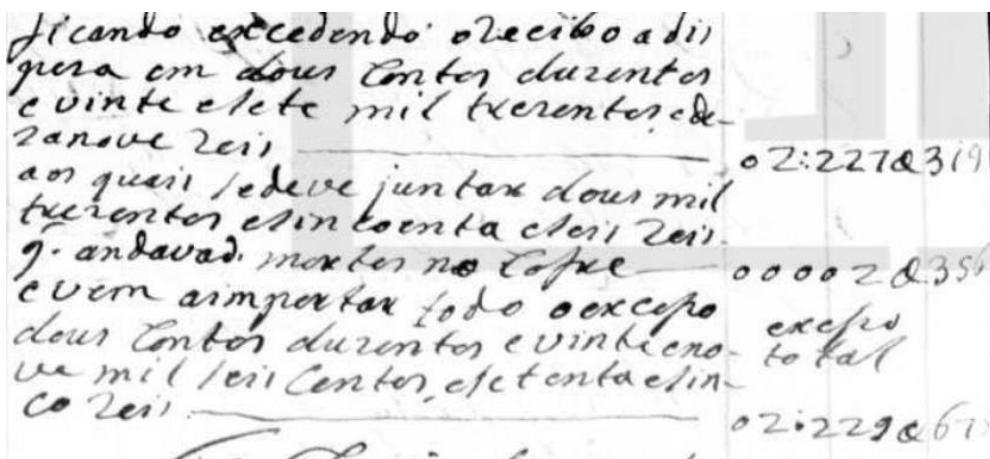 ficando excedendo o Recibo a dis
peza em dous Contos duzentos
e vinte e sete mil trezentos, e de-
zanove Reis 02:227@319
aos quais se deve juntar dous mil
trezentos e sincoenta e seis Reis
q. andavaõ mortos no Cofre 00002@356
e vem a importar todo o excesso
dous Contos duzentos e vinte e no-
ve mil seis Centos, e setenta e sin-
co Reis 02:229@67
excesso
total